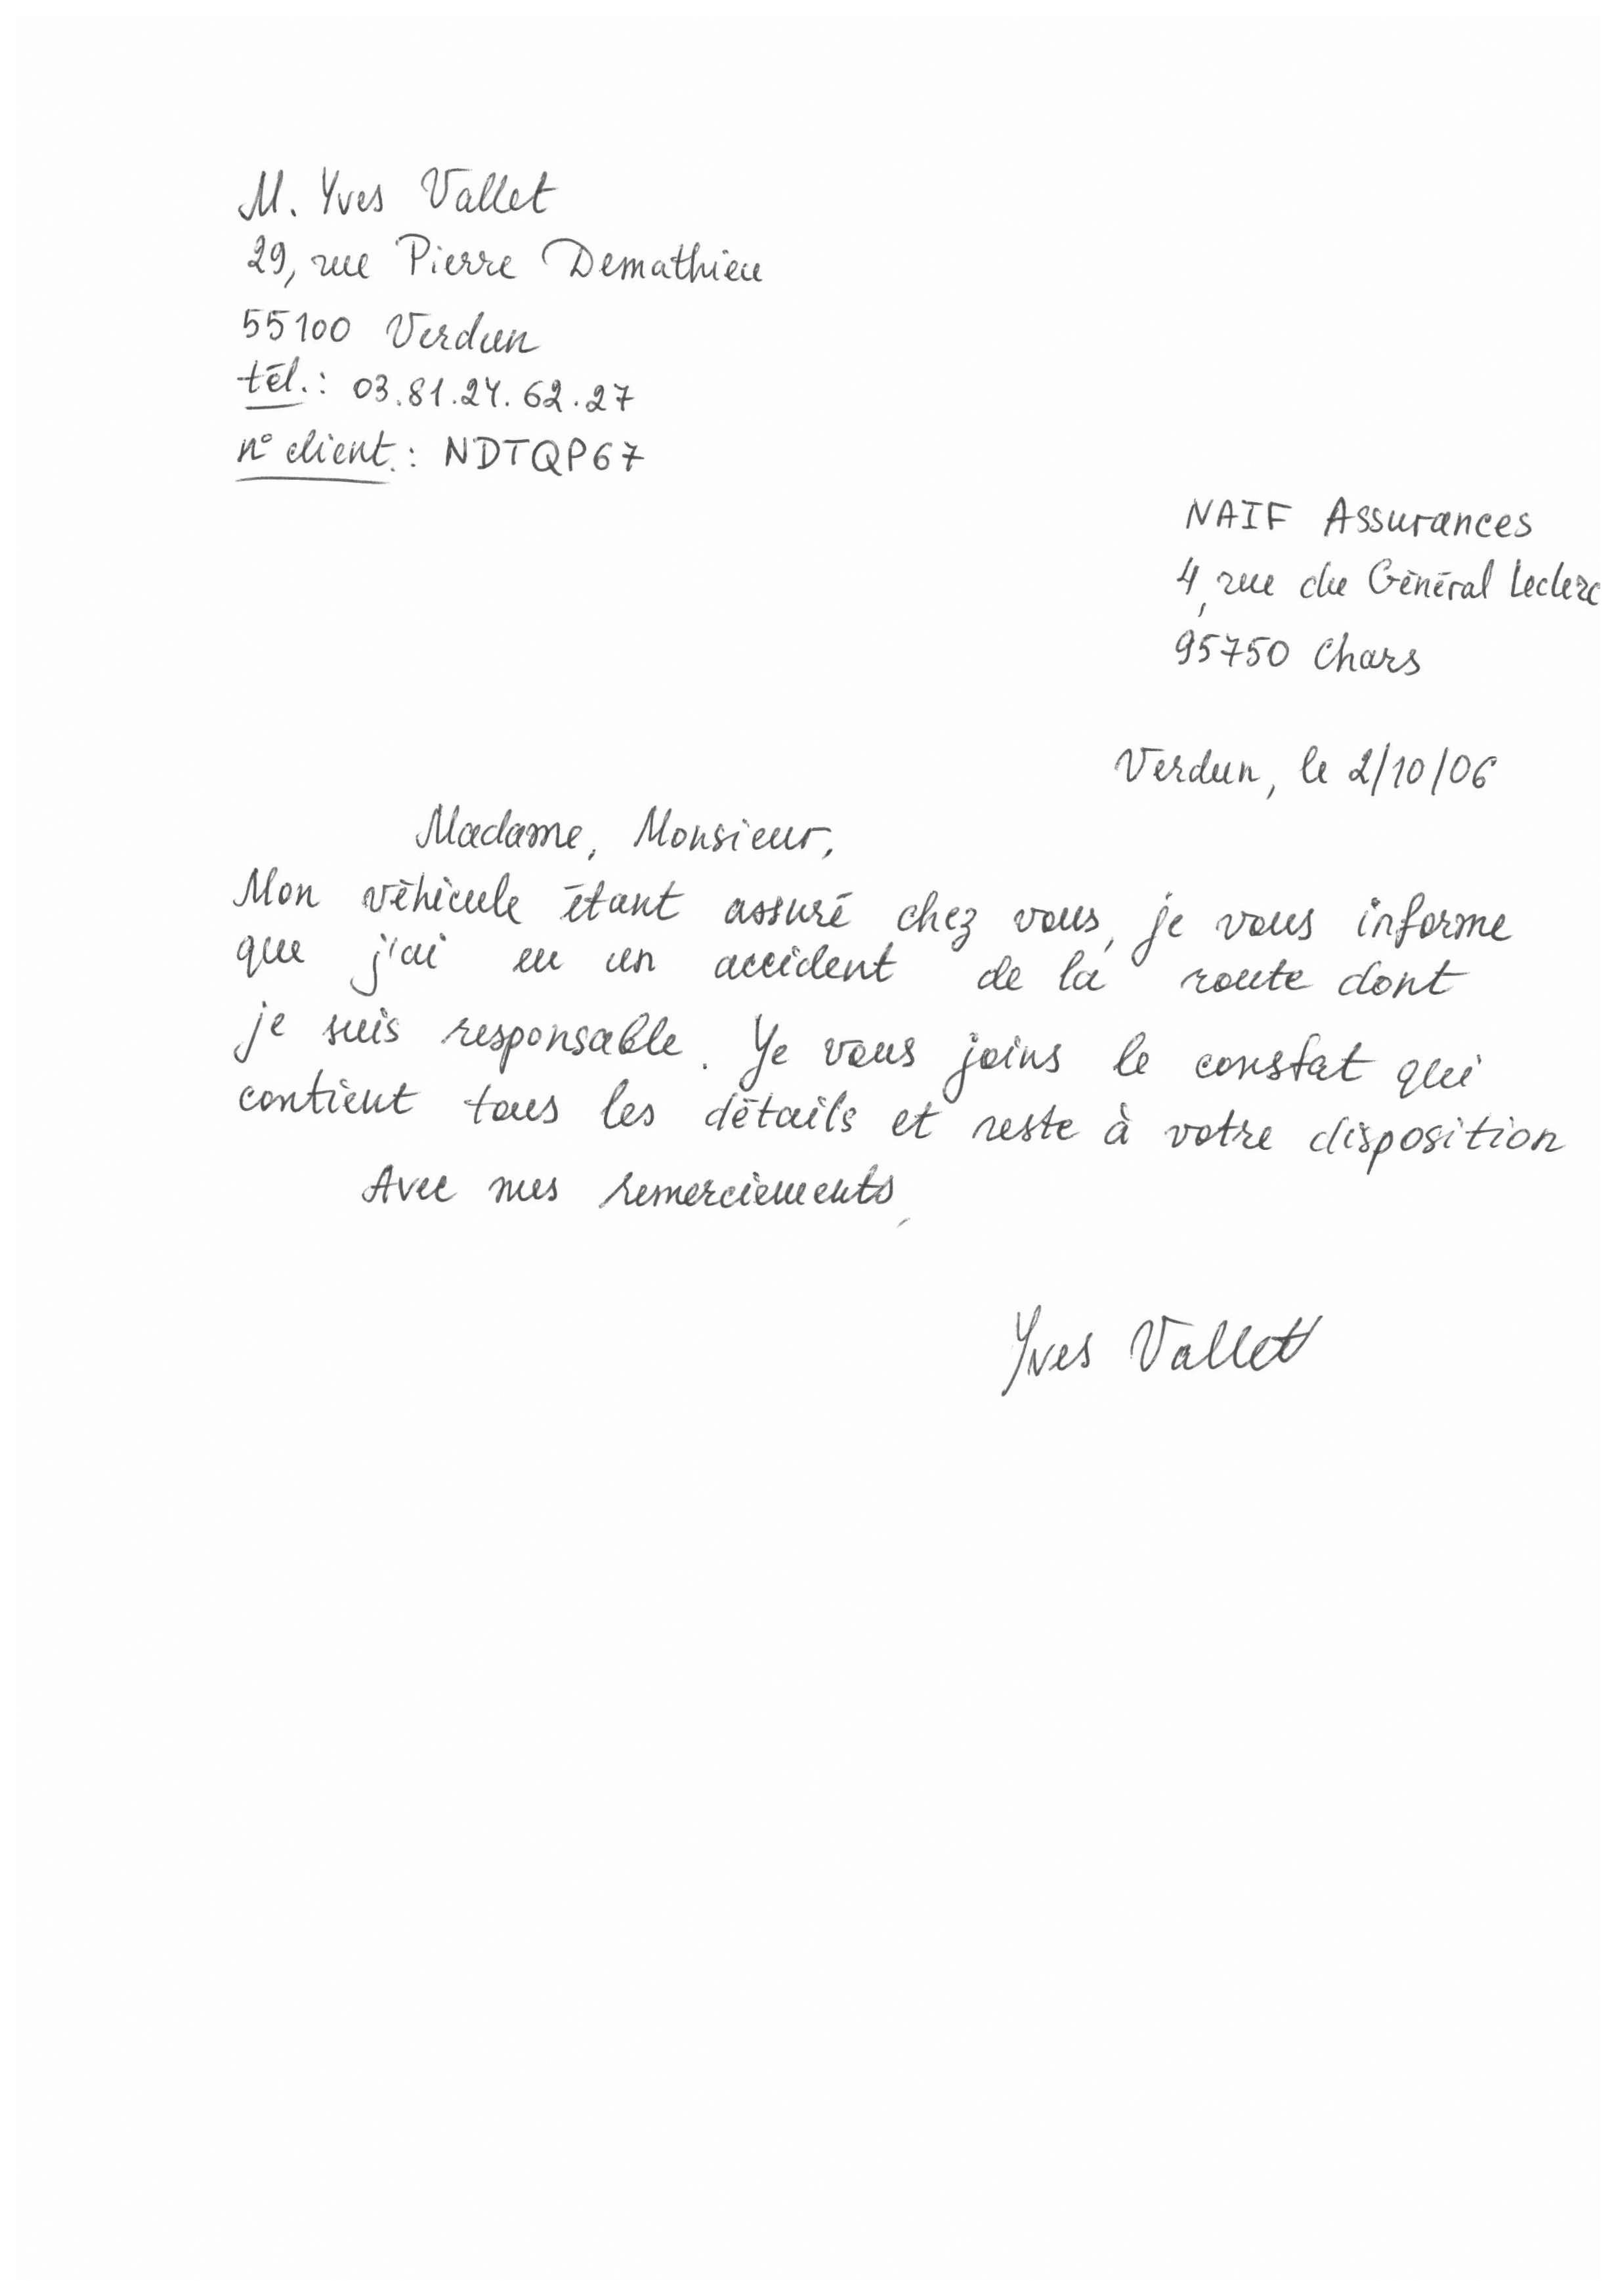 M. Yves Vallet
29, rue Pierre Demathieu
55100 Verdun
tél. : 03.81.24.62.27
n° client : NDTQP67
NAIF Assurances
4, rue du Général Leclerc
95750 Chars
Verdun, le 2/10/06
Madame, Monsieur,
Mon véhicule étant assuré chez vous, je vous informe
que j'ai eu un accident de la route dont
je suis responsable. Je vous joins le constat qui
contient tous les détails et reste à votre disposition
Avec mes remerciements,
Yves Vallet